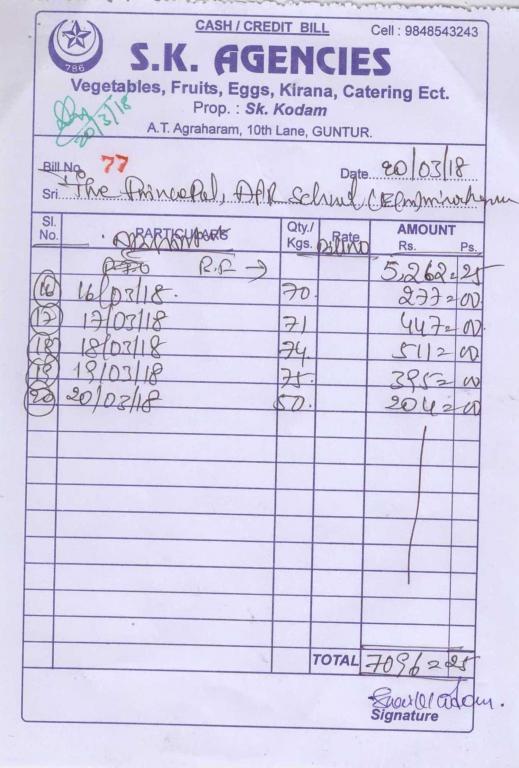 CASH / CREDIT BILL
Cell : 9848543243
786
S.K. AGENCIES
Vegetables, Fruits, Eggs, Kirana, Catering Ect.
Prop. : Sk. Kodam
20/3/18
A.T. Agraharam, 10th Lane, GUNTUR.
Bill No. 77 Date 20/03/18
Sri The Principal, APR School
Sl. No. PARTICULARS Qty./ Kgs. Rate AMOUNT Rs. Ps.
5,262=25
16 16/03/18. 70 277=00
17 17/03/18 71 447=00
18 18/03/18 74 511=00
19 19/03/18 75. 395=00
20 20/03/18 50. 204=00
TOTAL 7096=25
Signature